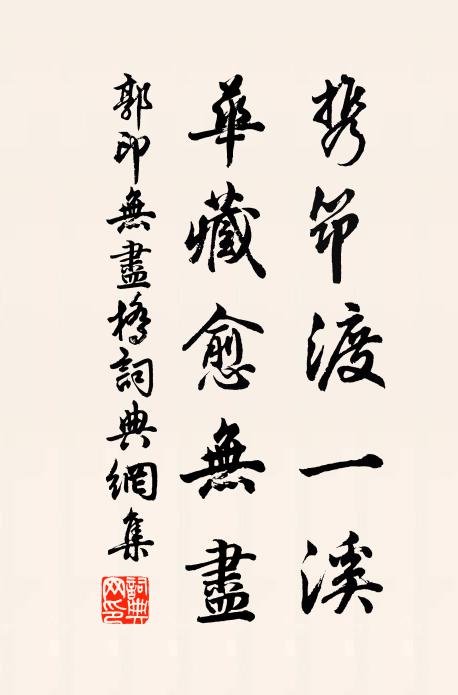 携笻渡一溪
華藏愈無盡
郭印無盡橋詞典網集
詞典網印